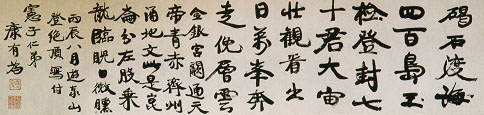 碣石渡海
四百島玉
檢登封七
十君大宙
壯觀看出
日萬峯奔
走俛層雲
金銀宮闕通天
帝青赤齊州
涌地文山是崑
崙分左股來
龍臨晚微曛
丙辰八月遊泰山
登絕頂寫付
憲子仁弟
康有為